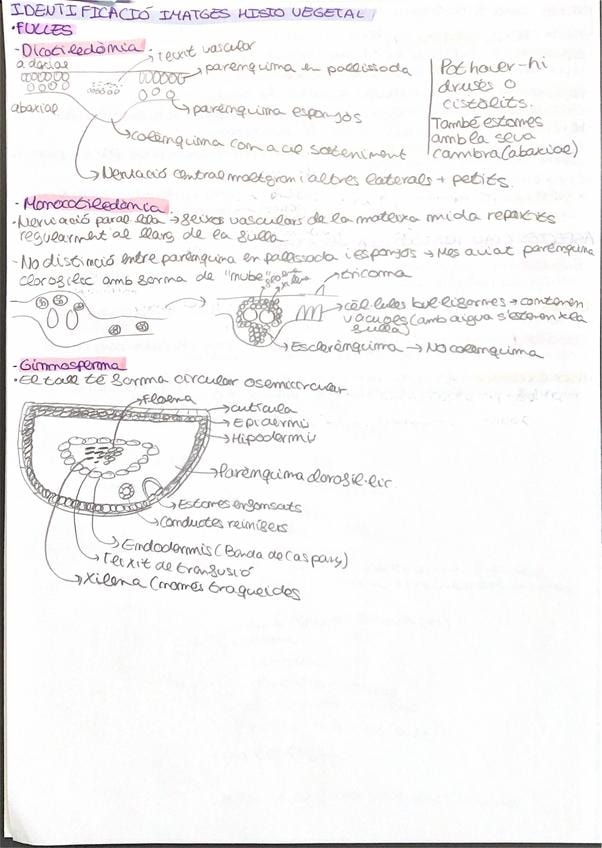 IDENTIFICACIÓ IMATGES HISTO VEGETAL
·FULLES
- Dicotiledònia:
teixit vascular
adaxial
parènquima en pallissada
abaxial
parènquima esponjós
colènquima com a cel sosteniment
Nervació central molt gran i altres laterals + petits.
Pot haver-hi
druses o
cistòlits.
També estomes
amb la seva
cambra (abaxial)
- Monocotiledònia
· Nervació paral·lela → feixos vasculars de la mateixa mida repartits
regularment al llarg de la fulla
- No distinció entre parènquima en pallissada i esponjós → Més aviat parènquima
clorofíl·lic amb forma de "nube"
floema
xilema
tricoma
cèl·lules buliformes → contenen
vacuoles (amb aigua s'esteren x la
fulla)
Esclerènquima → No colènquima
- Gimnosperma
· El tall té forma circular o semicircular
Floema
cutícula
Epidermis
Hipodermis
Parènquima clorofíl·lic.
Estomes enfonsats
Conductes reinífers
Endodermis (Banda de Caspary)
Teixit de transfusió
Xilema (només traqueides